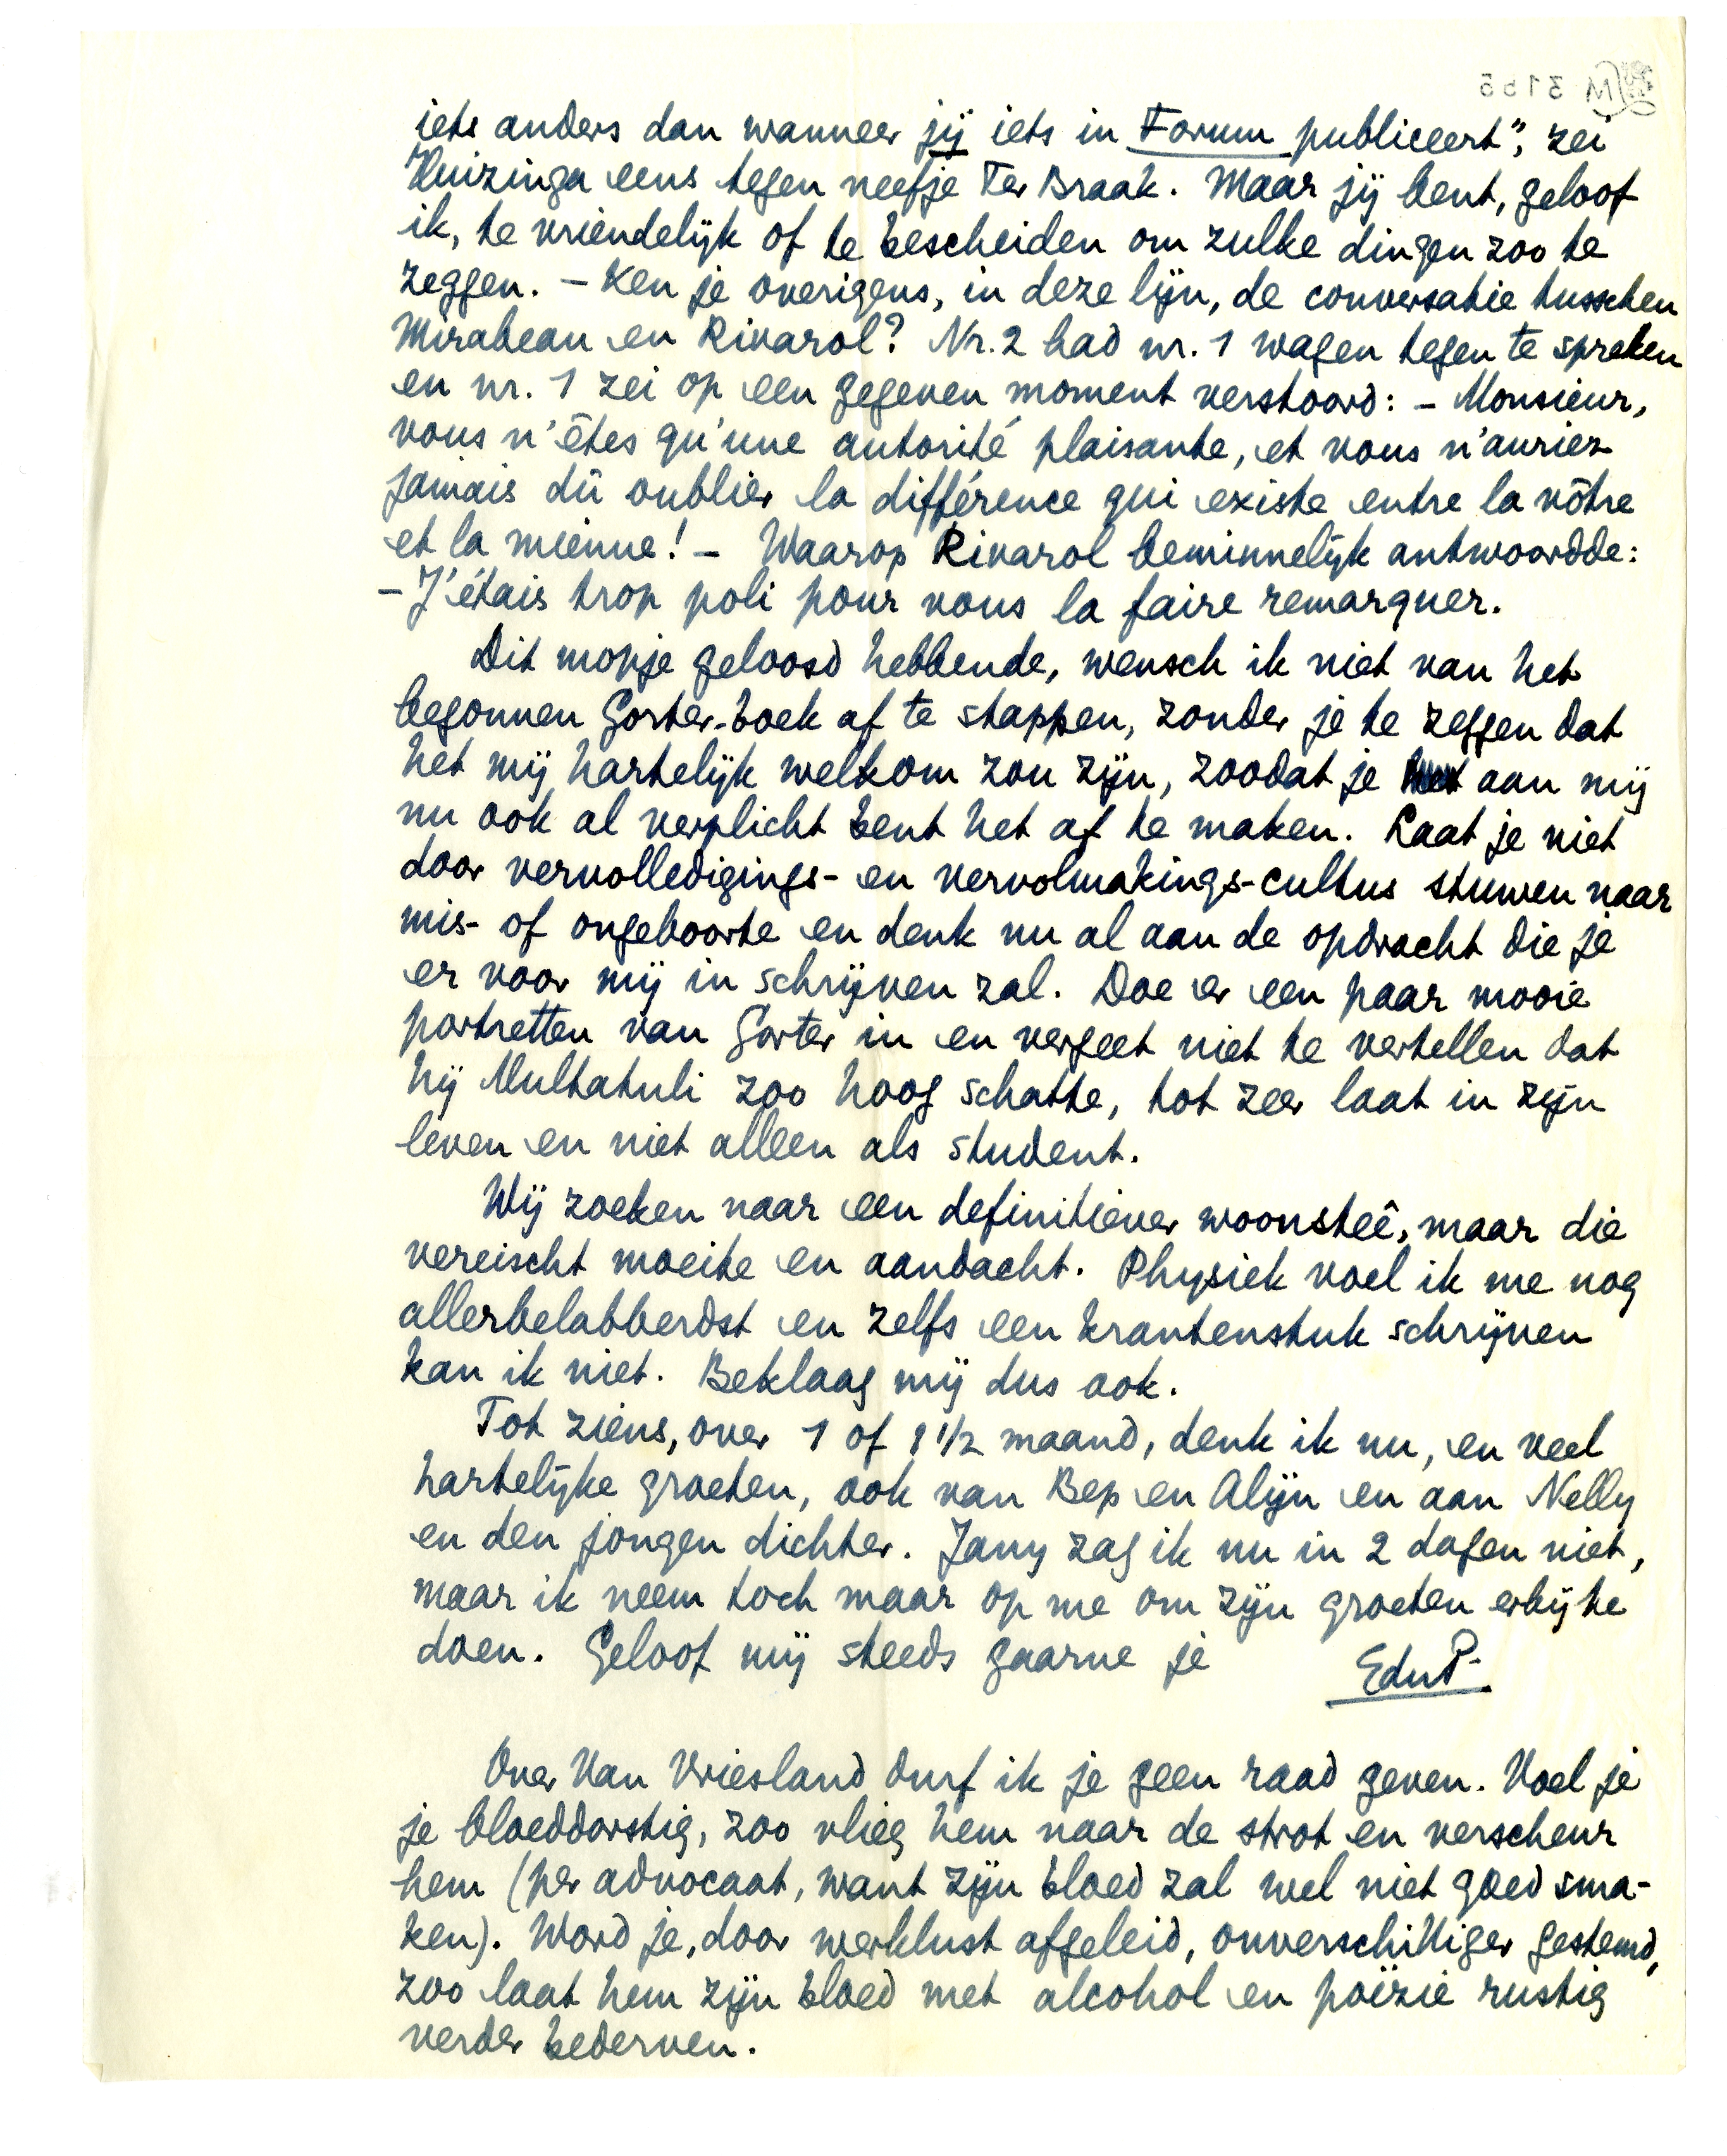 iets anders dan wanneer jij iets in Forum publiceert", zei
Huizinga eens tegen neefje Ter Braak. Maar jij bent, geloof
ik, te vriendelijk of te bescheiden om zulke dingen zoo te
zeggen. – Ken je overigens, in deze lijn, de conversatie tusschen
Mirabeau en Rivarol? Nr. 2 had nr. 1 wagen tegen te spreken
en nr. 1 zei op een gegeven moment verstoord: – Monsieur,
vous n'êtes qu'une autorité plaisante, et vous n'auriez
jamais dû oublier la différence qui existe entre la vôtre
et la mienne! – Waarop Rivarol beminnelijk antwoordde:
– J'étais trop poli pour vous la faire remarquer.
Dit mopje geloosd hebbende, wensch ik niet van het
begonnen Gorter-boek af te stappen, zonder je te zeggen dat
het mij hartelijk welkom zou zijn, zoodat je aan mij
nu ook al verplicht bent het af te maken. Laat je niet
door vervolledigings- en vervolmakings-cultus stuwen naar
mis- of ongeboorte en denk nu al aan de opdracht die je
er voor mij in schrijven zal. Doe er een paar mooie
portretten van Gorter in en vergeet niet te vertellen dat
hij Multatuli zoo hoog schatte, tot zeer laat in zijn
leven en niet alleen als student.
Wij zoeken naar een definitiever woonsteê, maar die
vereischt moeite en aandacht. Physiek voel ik me nog
allerbelabberdst en zelfs een krantenstuk schrijven
kan ik niet. Beklaag mij dus ook.
Tot ziens, over 1 of 1 1/2 maand, denk ik nu, en veel
hartelijke groeten, ook van Bep en Alijn en aan Nelly
en den jongen dichter. Jany zag ik nu in 2 dagen niet,
maar ik neem toch maar op me om zijn groeten erbij te
doen. Geloof mij steeds gaarne je
EduP.
Over Van Vriesland durf ik je geen raad geven. Voel je
je bloeddorstig, zoo vlieg hem naar de strot en verscheur
hem (per advocaat, want zijn bloed zal wel niet goed sma-
ken). Word je, door werklust afgeleid, onverschilliger gestemd,
zoo laat hem zijn bloed met alcohol en poëzie rustig
verder bederven.